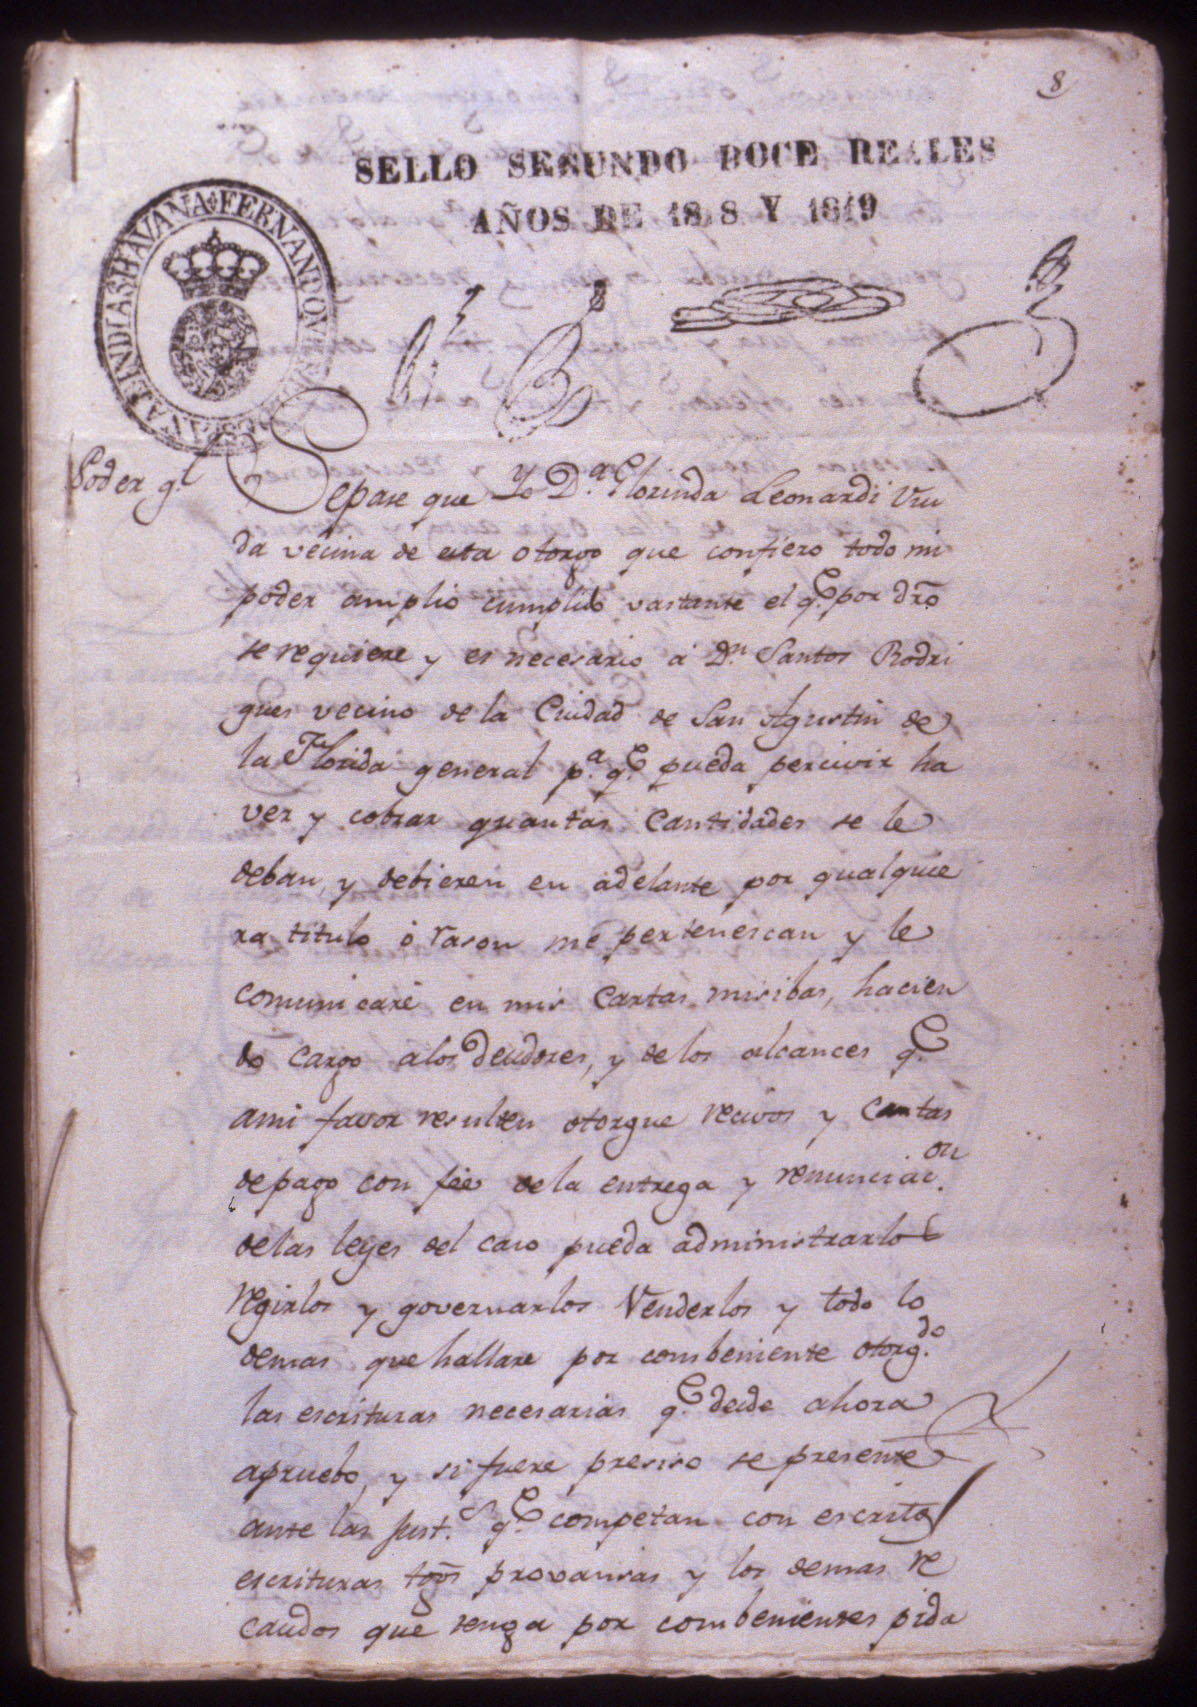 8
SELLO SEGUNDO DOCE REALES
AÑOS DE 1818 Y 1819
HAVANA FERNANDO VII
Poder g.l
Sepase que Yo D.a Florinda Leonardi Viu
da vecina de esta otorgo que confiero todo mi
poder amplio cumplido vastante el q.e por dro
se requiere y es necesario á D.n Santos Rodri
gues vecino de la Ciudad de San Agustin de
la Florida general p.a q.e pueda percivir ha
ver y cobrar quantas cantidades se le
deban, y debieren en adelante por qualquie
ra titulo ó rason me pertenescan y le
comunicaré en mis Cartas misibas, hacien
do cargo alos Deudores, y de los alcances q.e
ami favor resulten otorgue recivos y cartas
depago con feé dela entrega y renunciac.on
delas leyes del caso pueda administrarlos
regirlos y governarlos Venderlos y todo lo
demas que hallare por combeniente otorg.do
las escrituras necesarias q.e desde ahora
apruebo, y si fuere presiso se presente
ante las Just.s q.e competan con escritos
escrituras tgos provansas y los demas re
caudos que tenga por combenientes pida